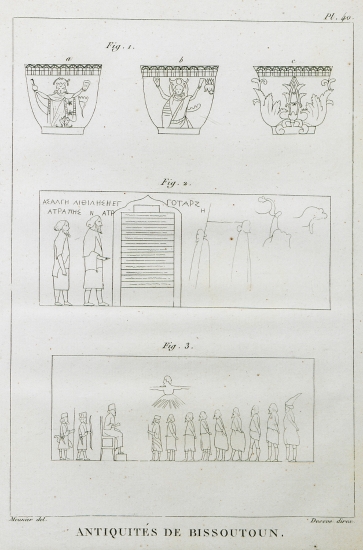 Pl. 40.
Fig. 1.
a
b
c
Fig. 2.
ΑΣΑΛΓΗ ΛΙΘΙΛΗΣΝΕΓ
ΑΤΡΑΠΗΣ Ν ΑΤΡ
ΓΟΤΑΡΖ
Η
Fig. 3.
Meunier del.
direx.
ANTIQUITÉS DE BISSOUTOUN.